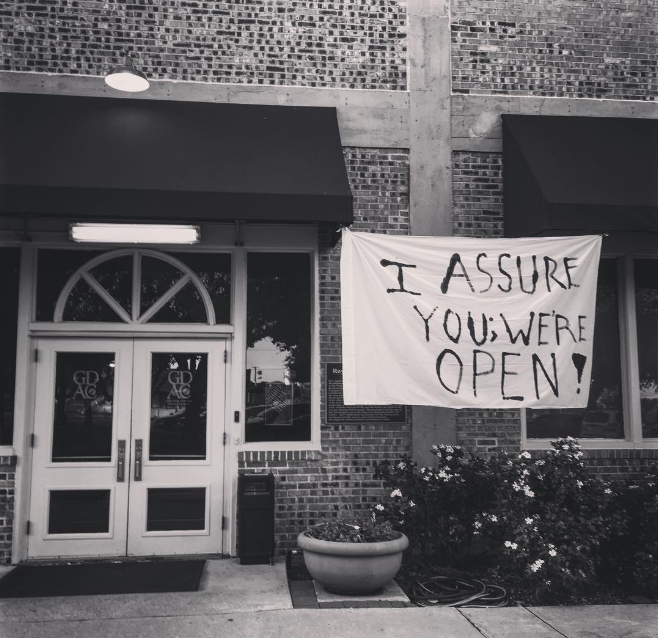 I ASSURE
YOU; WE'RE
OPEN!
GD
AC
GD
AC